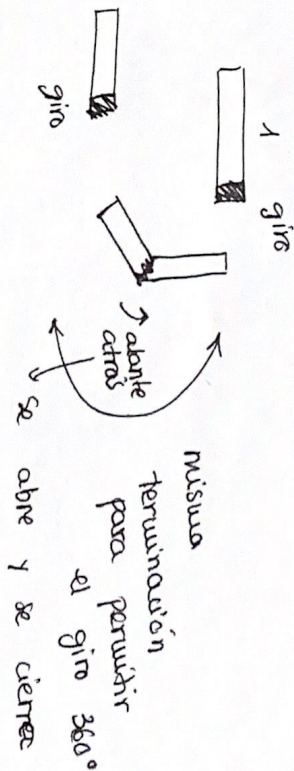 1
giro
giro
alante
atrás
misma
terminación
para permitir
el giro 360°
se abre y se cierra